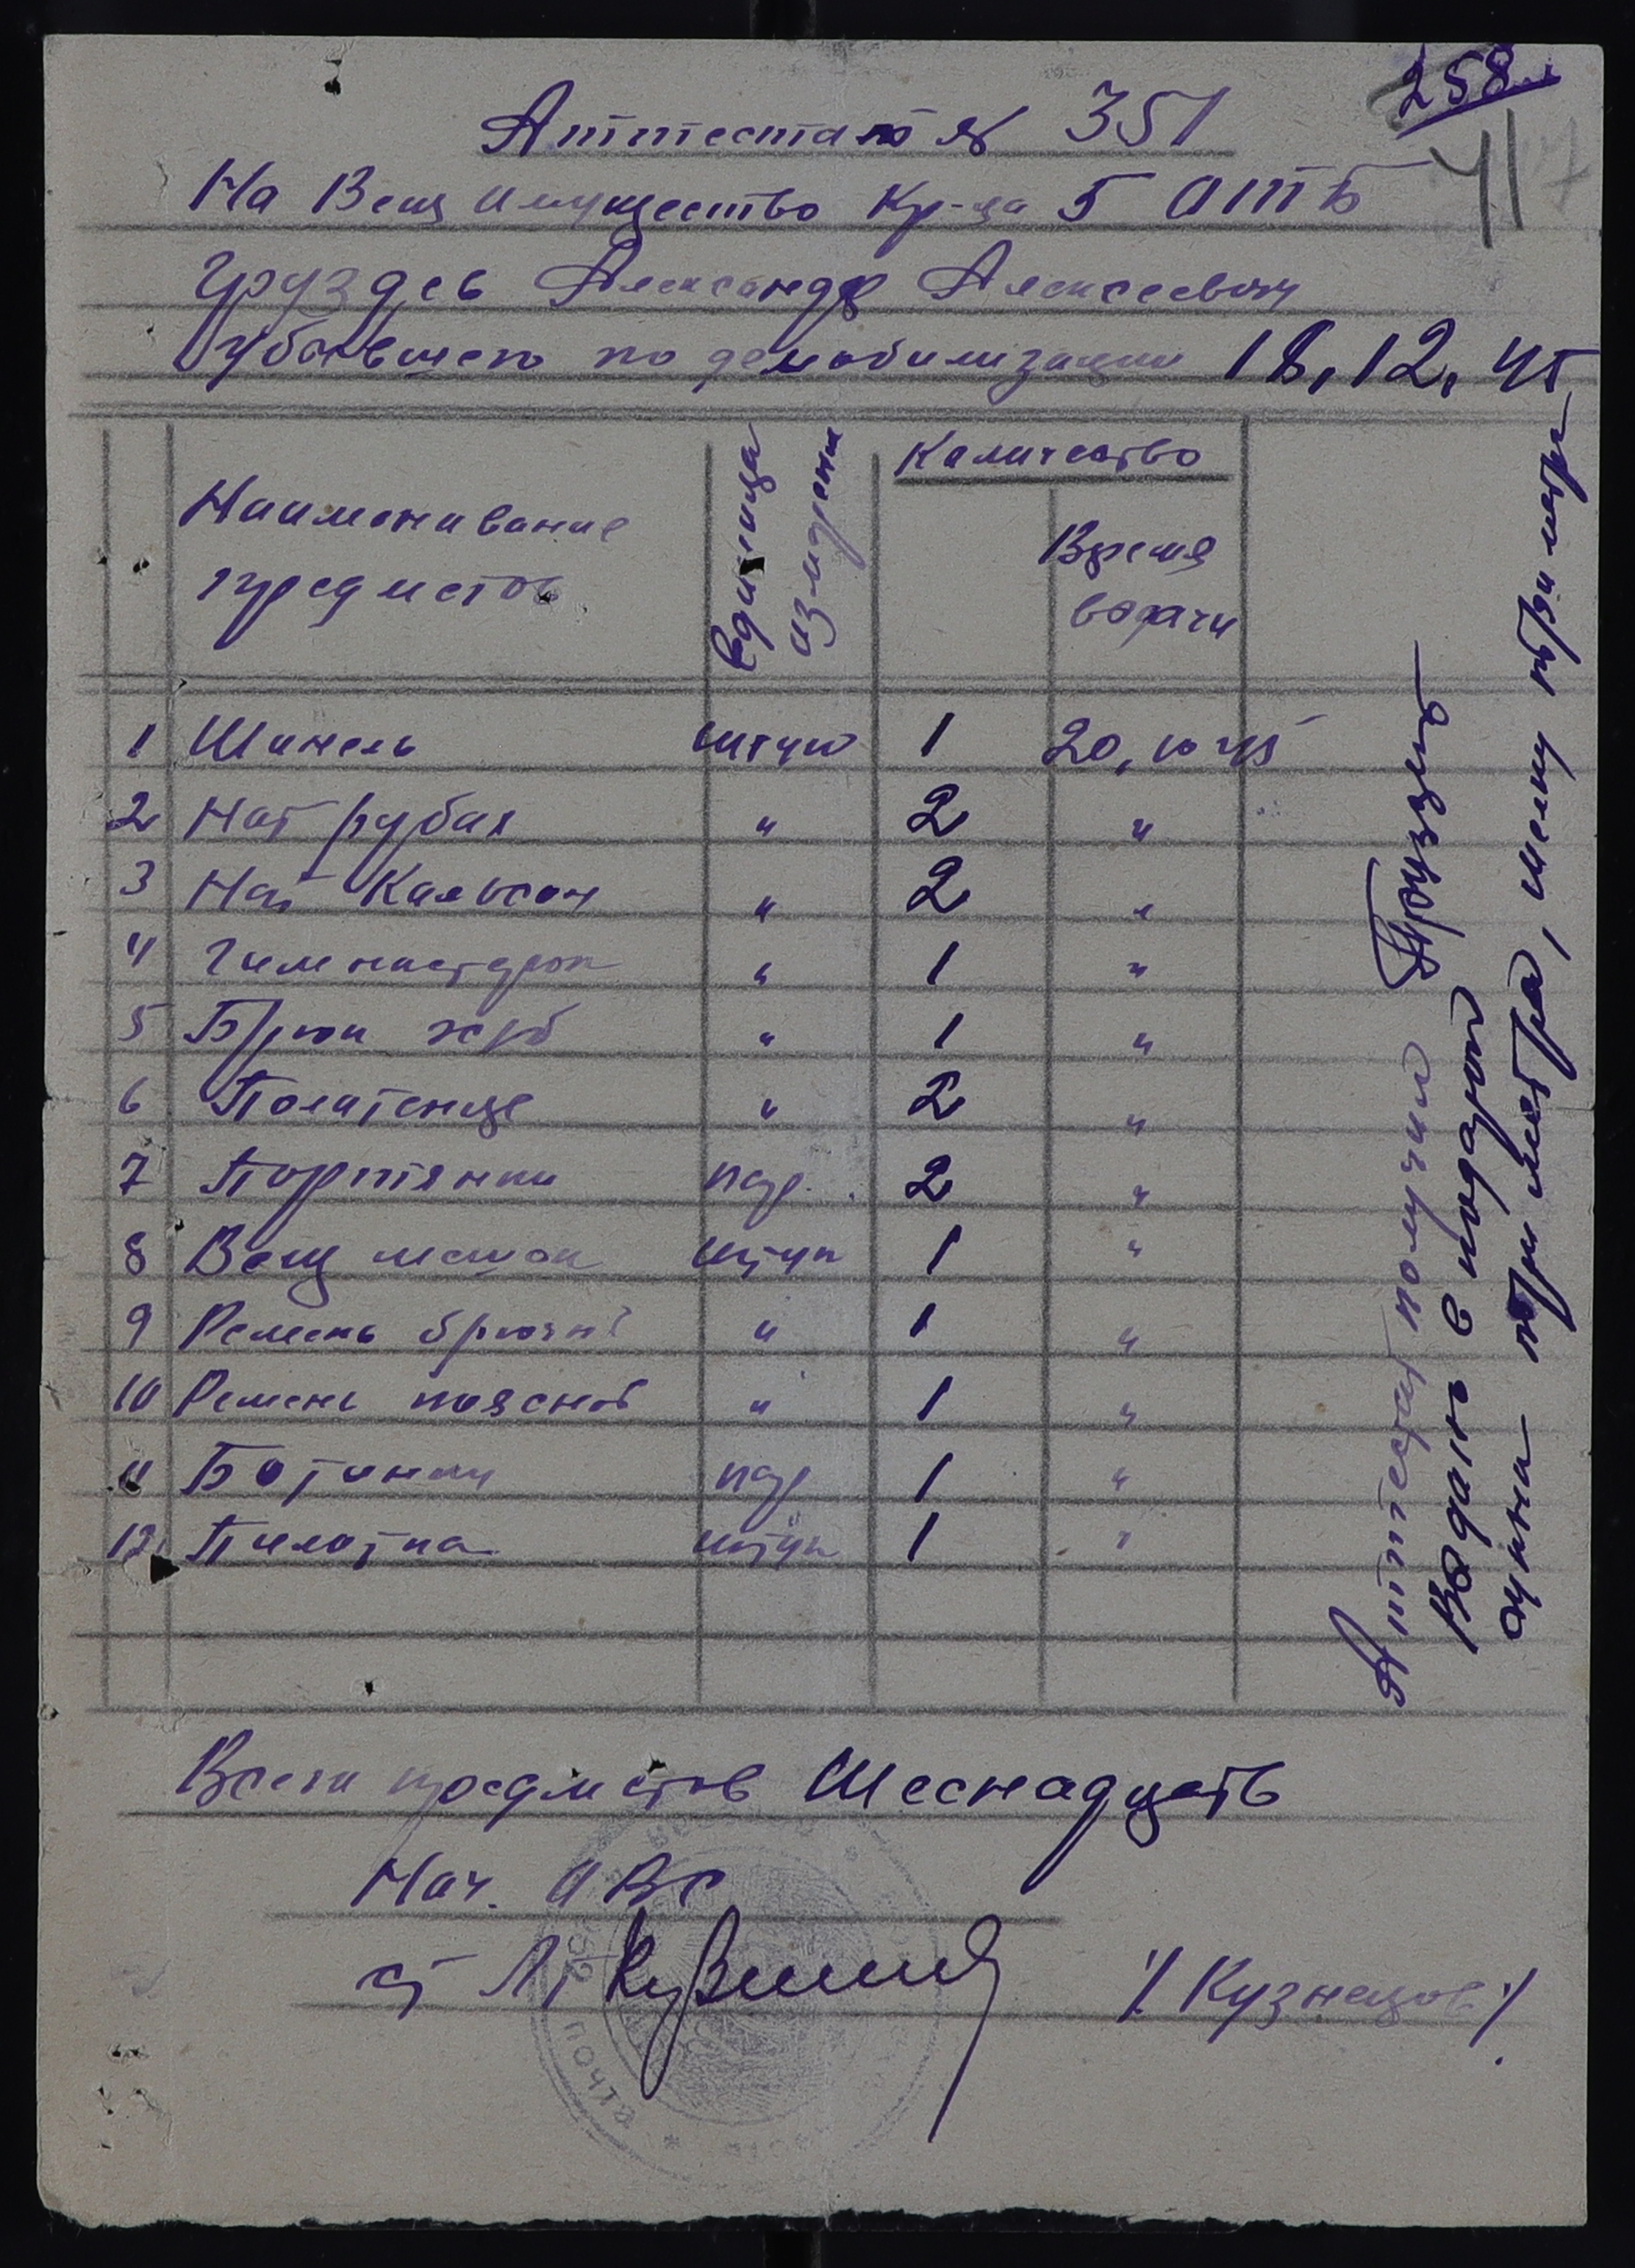 258
417
Аттестат № 351
На Вещ имущество Кр-ца 5 ОТБ
Груздев Александр Алексеевич
Убывшего по демобилизации 18,12,45
Наименивание предметов
Единица измерен
Каличество
Время водачи
1 Шинель штук 1 20,10 45
2 Нат рубах " 2 "
3 Нат Кальсон " 2 "
4 Гимнастерок " 1 "
5 Брюк хб " 1 "
6 Полатенце " 2 "
7 Портянки пар. 2 "
8 Вещ мешок штук 1 "
9 Ремень брючн " 1 "
10 Ремень пояснов " 1 "
11 Ботинки пар 1 "
12 Пилотка штук 1 "
Всего предметов Шеснадцать
Нач. ОВС
ст Лт
/Кузнецов/
ПОЧТА
Аттестат получил Груздев
Выдано в подарой
сукна три метра, шелку три метр